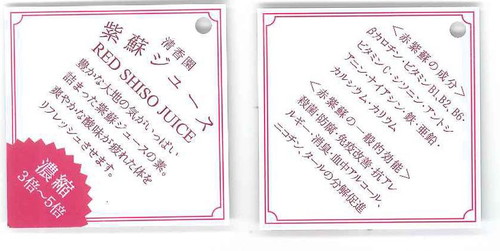 清香園
紫蘇ジュース
RED SHISO JUICE
豊かな大地の気がいっぱい
詰まった紫蘇ジュースの素。
爽やかな酸味が疲れた体を
リフレッシュさせます。
濃縮
3倍～5倍
＜赤紫蘇の成分＞
βカロチン・ビタミンB1,B2,B6・
ビタミンC・シソニン・アントシ
アニン・ナイアシン・鉄・亜鉛・
カルシウム・カリウム
＜赤紫蘇の一般的効能＞
殺菌・防腐・免疫改善・抗アレ
ルギー・消臭・血中アルコール、
ニコチン、タールの分解促進